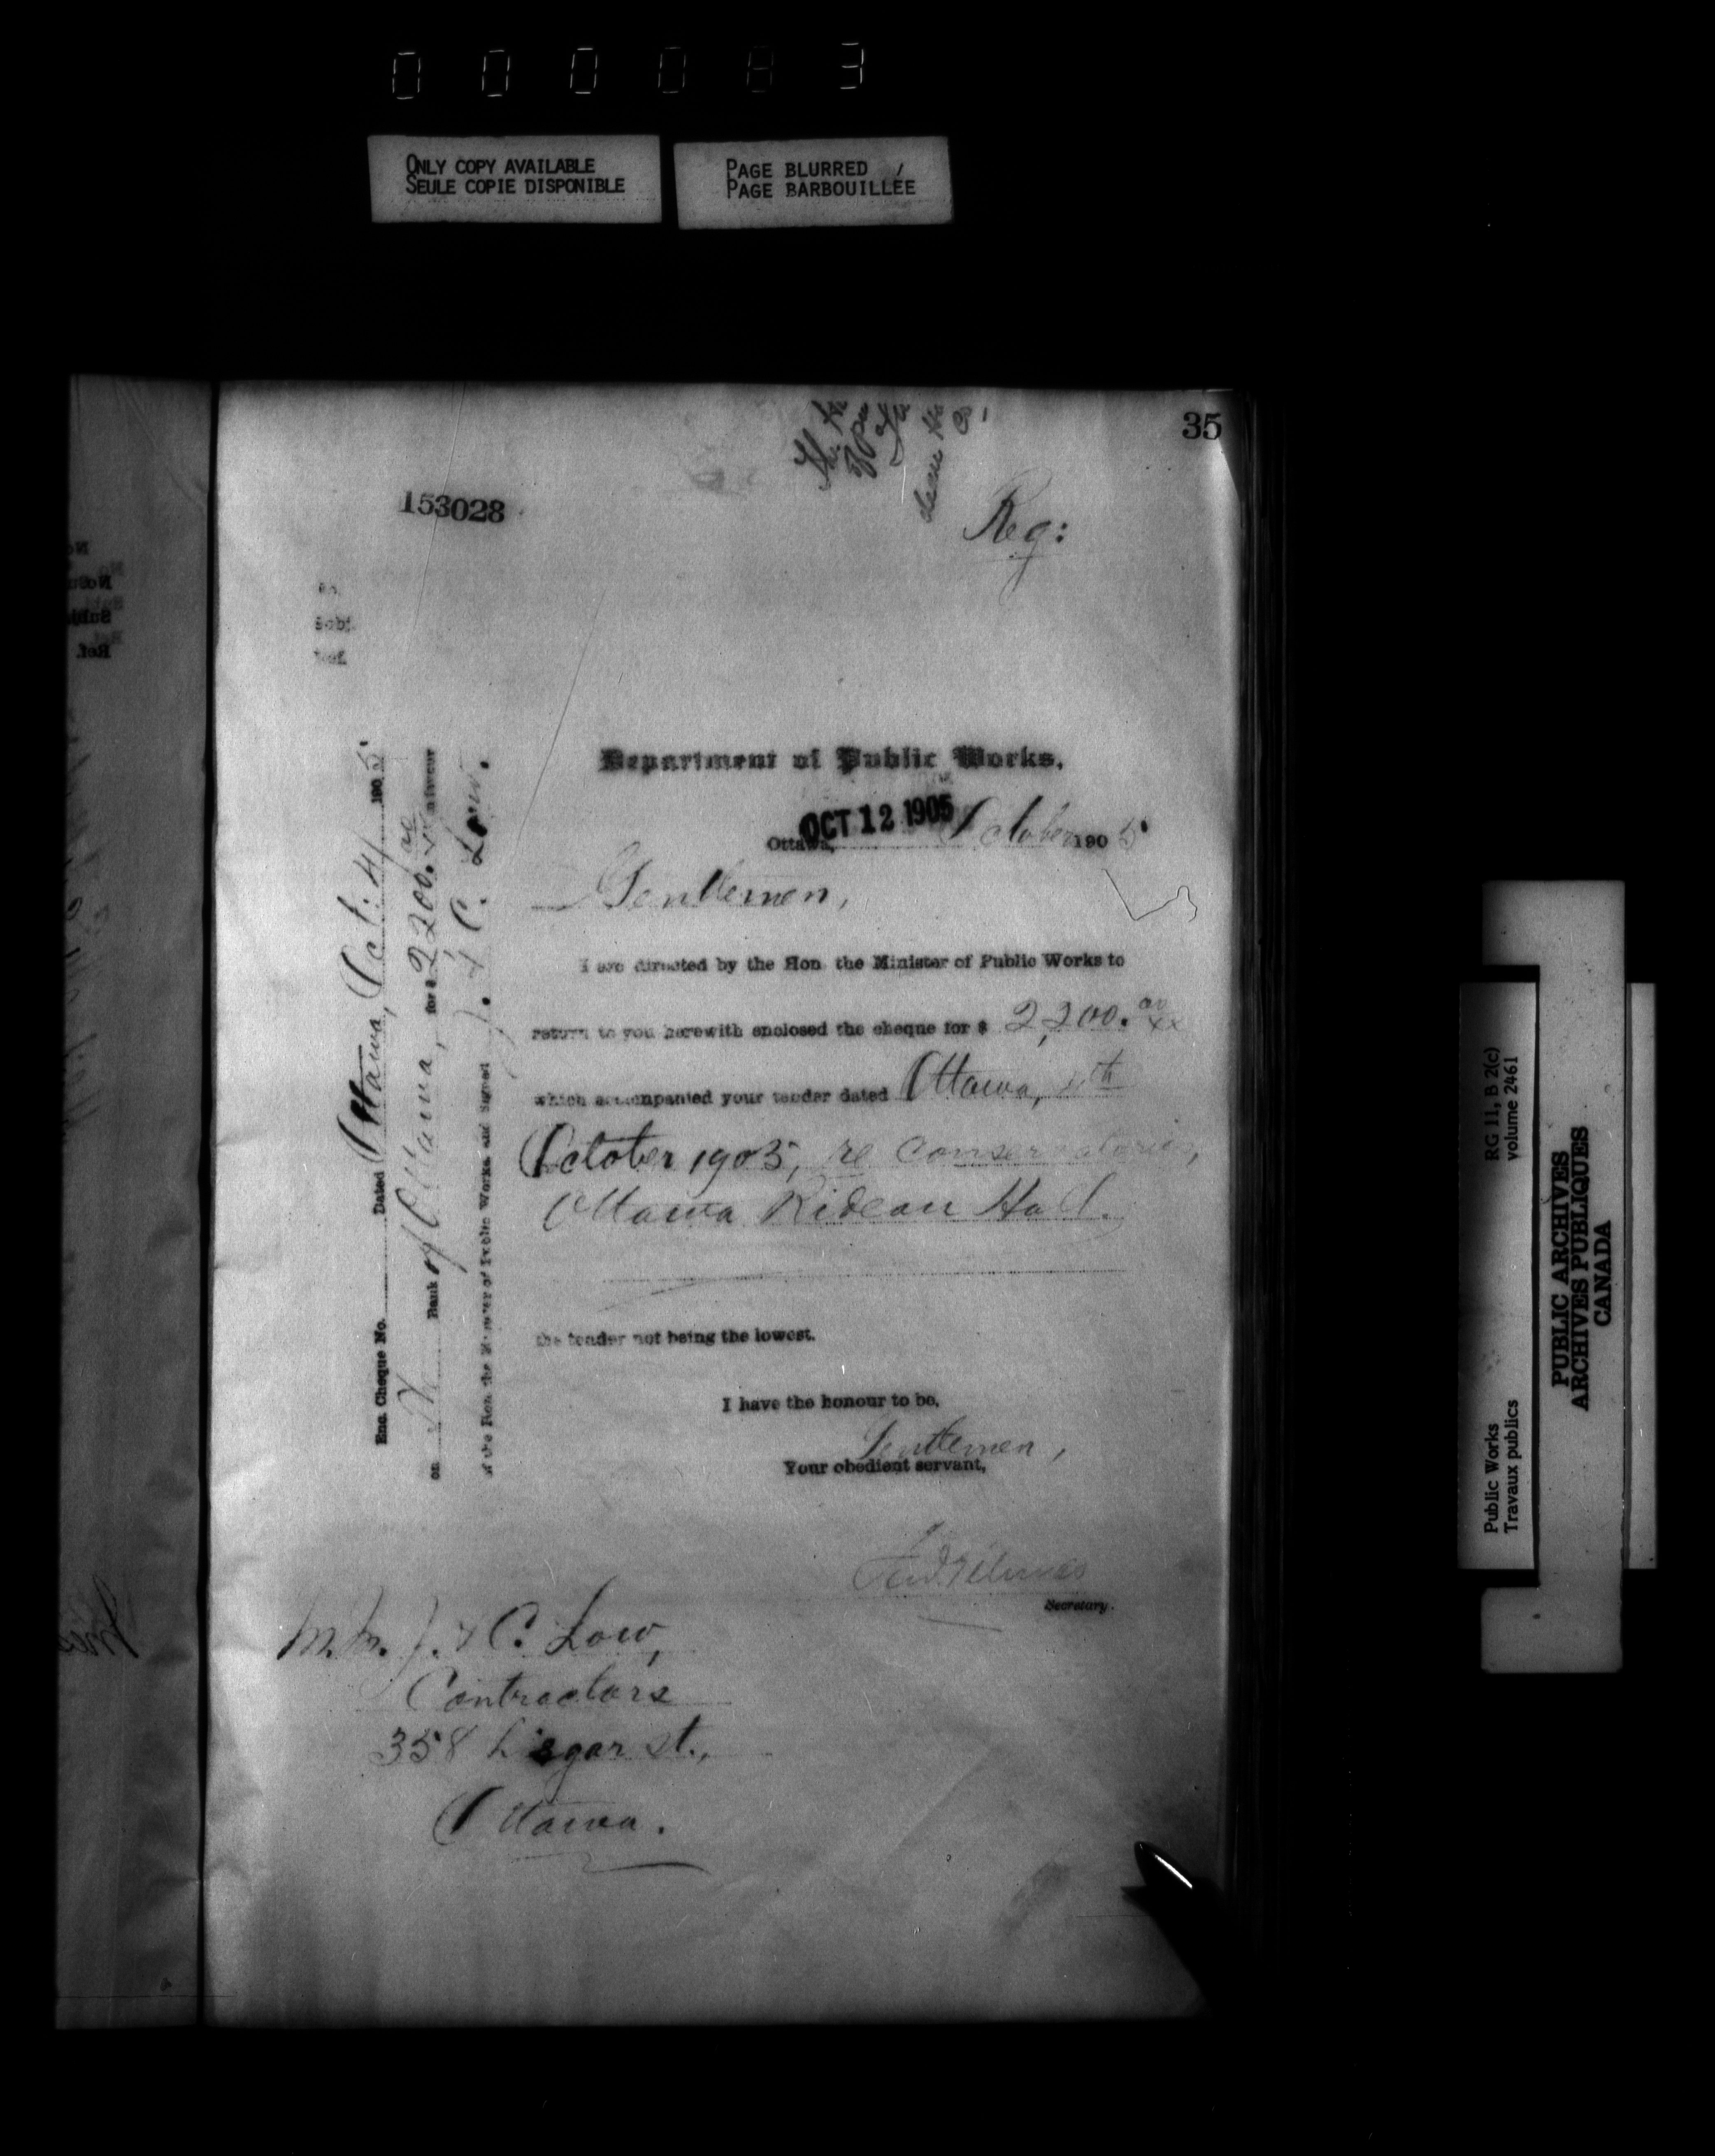 000083
ONLY COPY AVAILABLE
SEULE COPIE DISPONIBLE
PAGE BLURRED
PAGE BARBOUILLÉE
35
153028
Reg:
No.
Subj.
Ref.
Department of Public Works.
OCT 12 1905
Ottawa, October 1905
Gentlemen,
I am directed by the Hon. the Minister of Public Works to
return to you herewith enclosed the cheque for $ 2,200.00/xx
which accompanied your tender dated Ottawa,
October 1905, re conservatories,
Ottawa Rideau Hall.
the tender not being the lowest.
I have the honour to be,
Gentlemen,
Your obedient servant,
Secretary.
M.M. J. & C. Low,
Contractors
358 Lisgar St.,
Ottawa.
Enc. Cheque No. Dated Ottawa, Oct. 4/ 1905
on The Bank of Ottawa, for $ 2200.00/xx in favour
of the Hon. the Minister of Public Works and Signed J. & C. Low.
Public Works
Travaux publics
RG 11, B 2(c)
volume 2461
PUBLIC ARCHIVES
ARCHIVES PUBLIQUES
CANADA